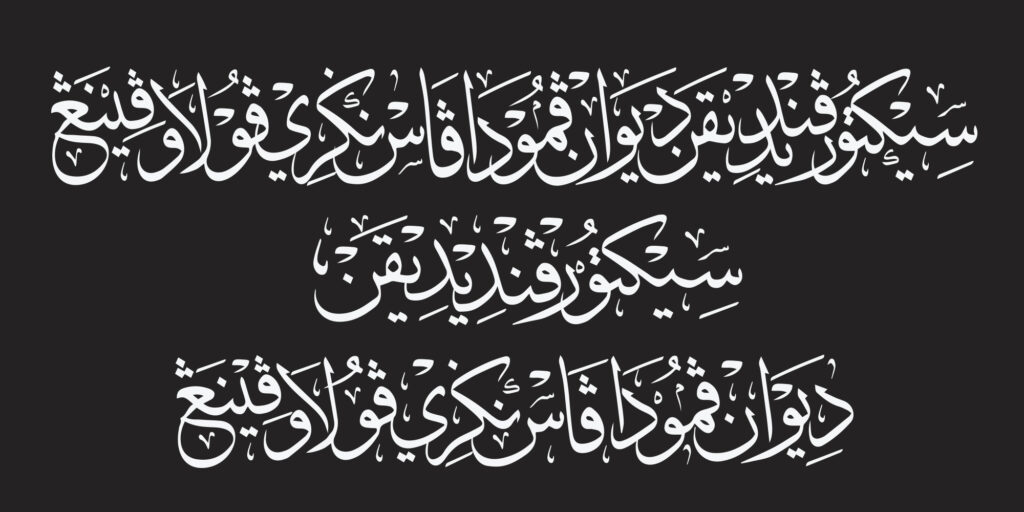 سيکتور ڤنديديقن ديوان ڤمودا ڤاس نݢري ڤولاو ڤينڠ
سيکتور ڤنديديقن
ديوان ڤمودا ڤاس نݢري ڤولاو ڤينڠ